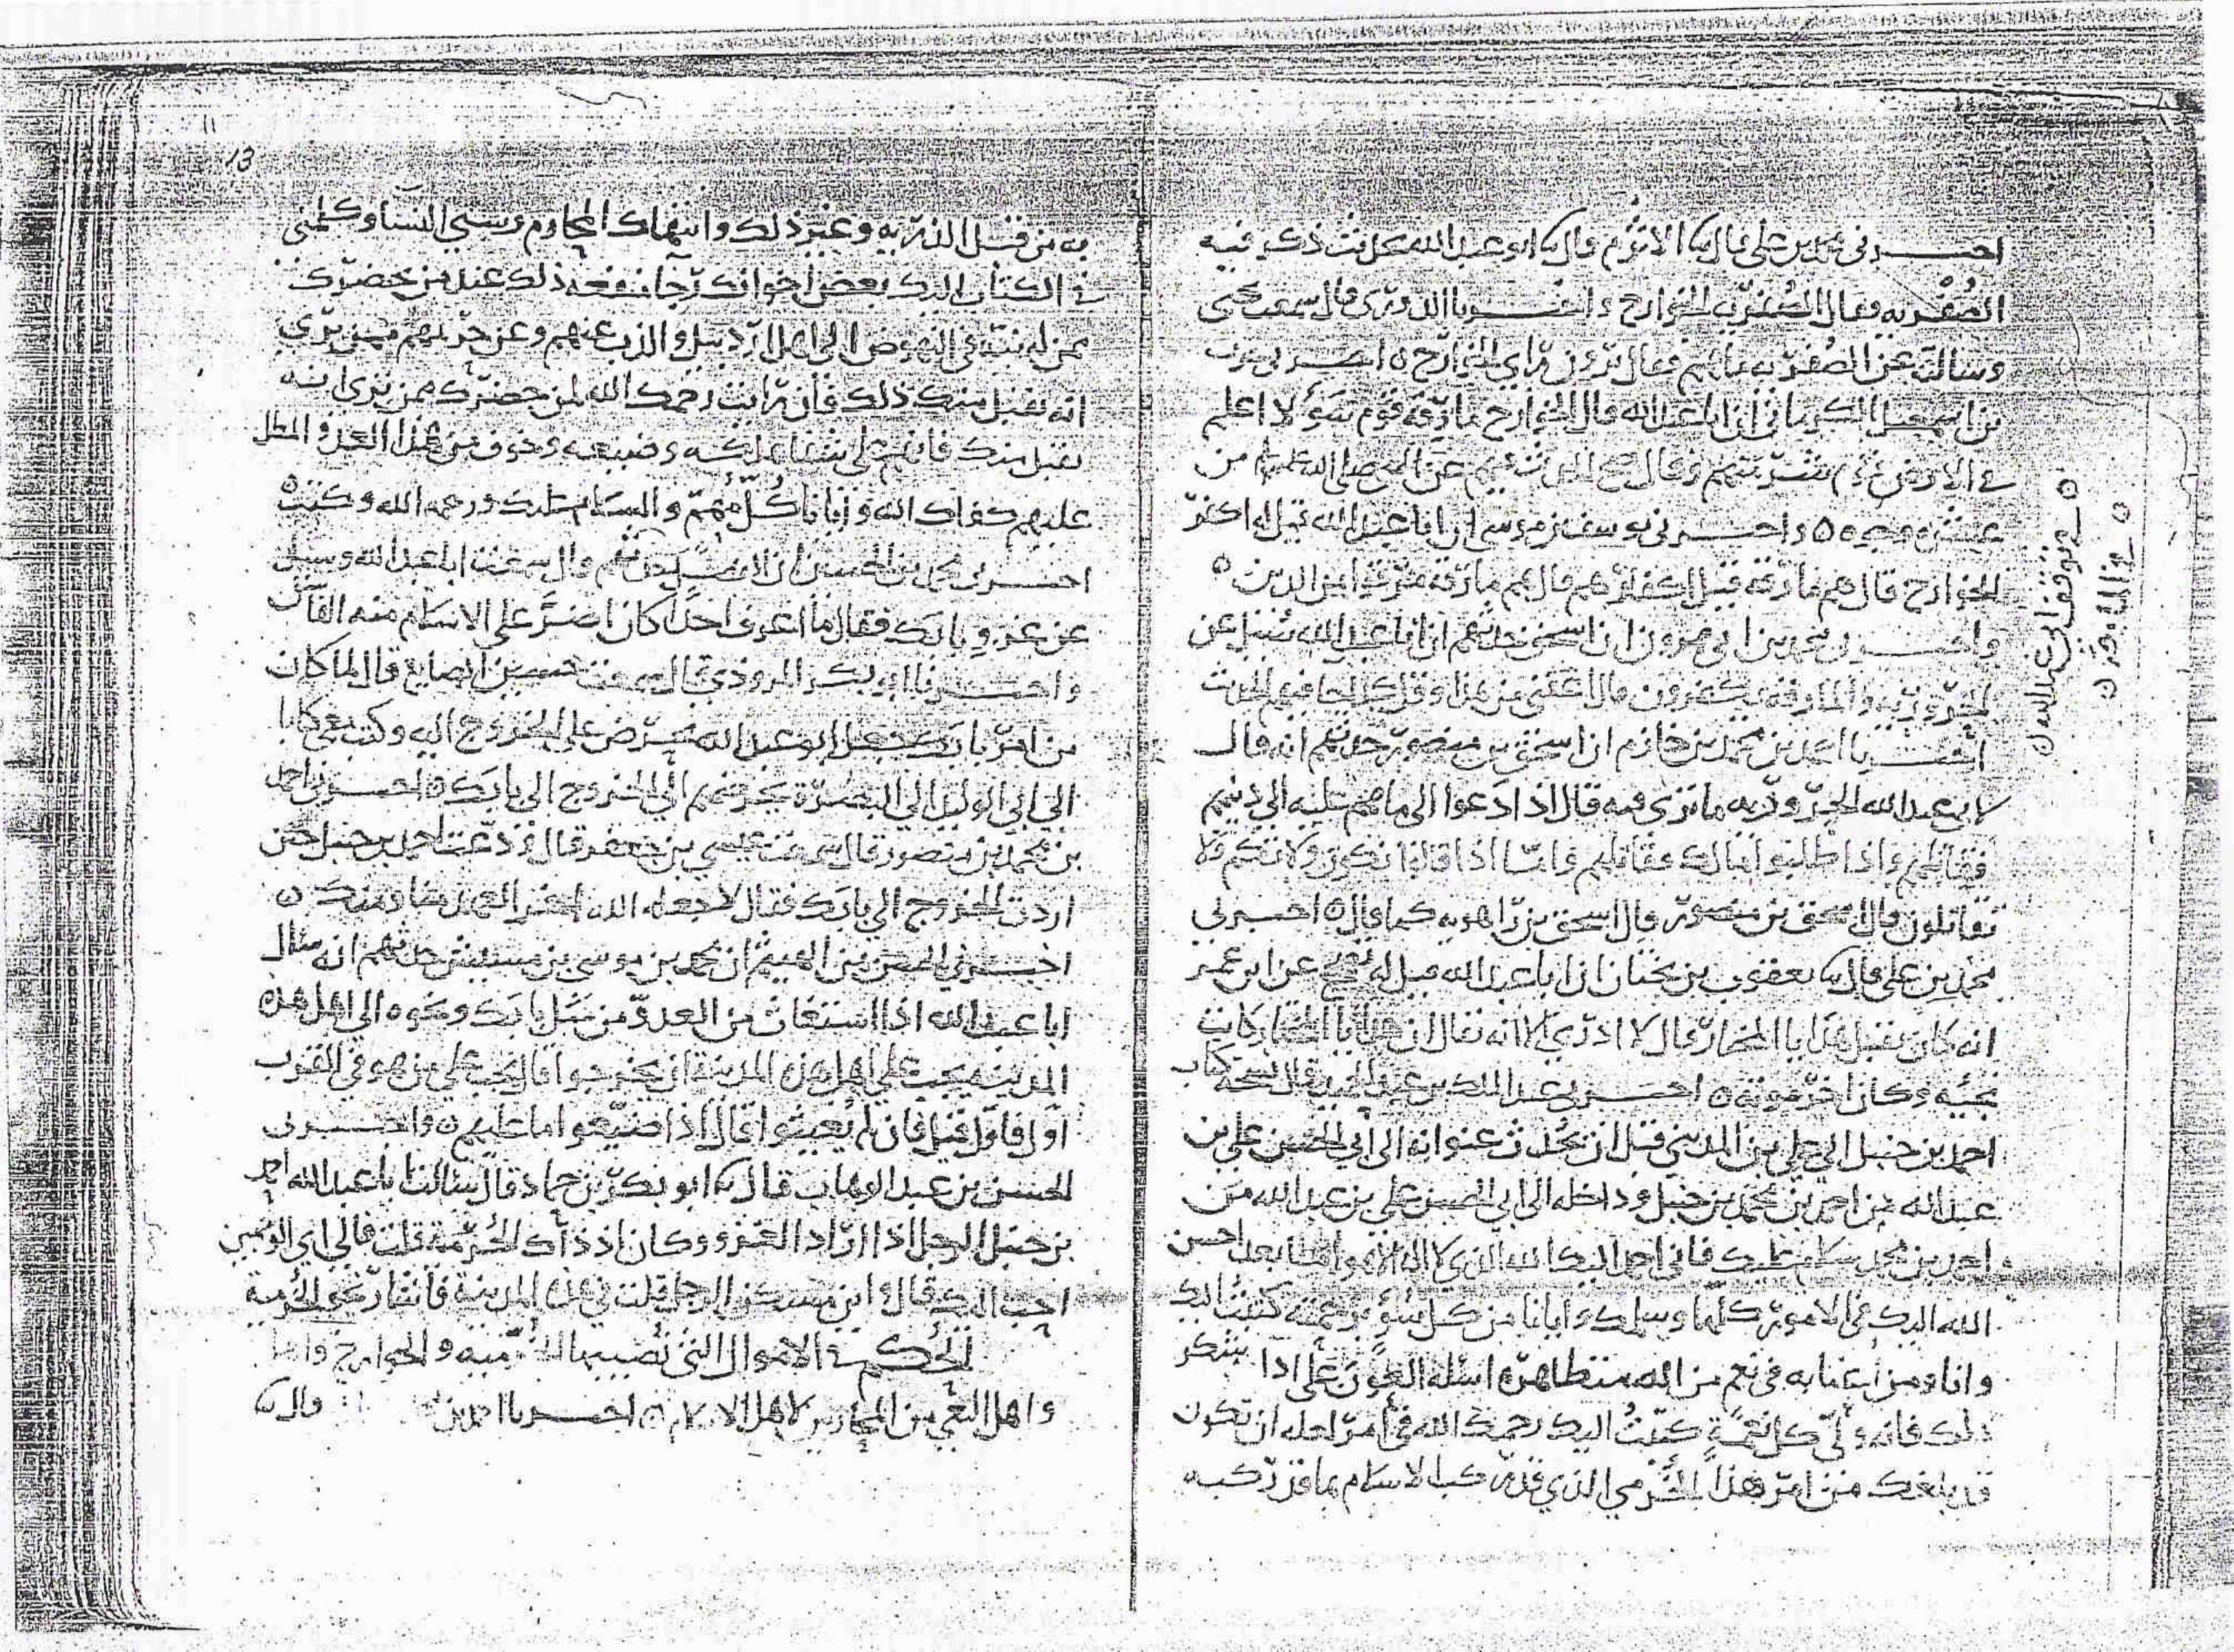 اخبرني محمد بن علي قال ثنا الاثرم قال ثنا ابو عبد الله بحديث ذكر فيه
الصفرية فقال الصفرية الخوارج واخبرنا الدوري قال سمعت يحيى
وسالته عن الصفرية ما هم فقال يرون راي الخوارج ٥ اخبرني حرب
بن اسمعيل الكرماني ان ابا عبد الله قال الخوارج مارقة قوم سوء لا اعلم
في الارض قوم شر منهم وقال صح الحديث فيهم عن النبي صلى الله عليه وسلم من
عشرة وجوه ٥ واخبرني يوسف بن موسى ان ابا عبد الله قيل له اكفر
الخوارج قال هم مارقة قيل اكفار هم قال هم مارقة مرقوا من الدين ٥
واخبرني محمد بن ابي هرون ان اسحق حدثهم ان ابا عبد الله سئل عن
الحرورية والمارقة يكفرون قال اعفني من هذا وقل كما جا فيهم الحديث
اخبرنا احمد بن محمد بن حازم ان اسحق بن منصور حدثهم انه قال
لابي عبد الله الحرورية ما ترى فيه قال اذا دعوا الى ما هم عليه الى دينهم
فقاتلهم واذا طلبوا مالك فقاتلهم واما اذا قالوا نكون ولاتكم فلا
تقاتلون قال اسحق بن منصور قال اسحق بن راهويه كما قال ٥ اخبرني
محمد بن علي قال ثنا يعقوب بن بختان ان ابا عبد الله قيل له يصح عن ابن عمر
انه كان يقبل هدايا المختار قال لا ادري الا انه يقال ان هدايا المختار كانت
تجئيه وكان اخر موته ٥ اخبرني عبد الملك بن عبد الحميد قال نسخة كتاب
احمد بن حنبل الى علي بن المديني قبل ان يحدث عنوانه الى ابي الحسن علي بن
عبد الله من احمد بن محمد بن حنبل وداخله الى ابي الحسن علي بن عبد الله من
احمد بن محمد سلام عليك فاني احمد اليك الله الذي لا اله الا هو اما بعد احسن
الله اليك في الامور كلها وسلمك وايانا من كل سوء برحمته كتبت اليك
وانا ومن اعنا به في نعم من الله متظاهرة اسئله العون على ادا شكر
ذلك فانه ولي كل نعمة كتبت اليك رحمك الله في امر لعله ان يكون
قد بلغك من امر هذا الخرمي الذي قد ركب الاسلام بما قد ركبه
٥ في توقف ابي عبد الله ٥
13
به من قبل الذرية وغير ذلك وانتهاك المحارم وسبي النسا وكلمني
في الكتاب اليك بعض اخوانك رجا منفعة ذلك عند من يحضرك
ممن له نية في النهوض الى اهل اردبيل والذب عنهم وعن حريمهم ممن ترى
انه يقبل منك ذلك فان رايت رحمك الله لمن حضرك ممن ترى انه
يقبل منك فانهم على شفا هلكة وضيعة وخوف من هذا العدو المطل
عليهم كفاك الله وايانا كل مهم والسلام عليك ورحمة الله وكتب ٥
اخبرني محمد بن الحسين ان الفضل حدثهم قال سمعت ابا عبد الله وسئل
عن غزو بابك فقال ما اعرف احدا كان اضر على الاسلام منه
واخبرنا ابو بكر المروذي قال سمعت حسين الصايغ قال لما كان
من امر بابك جعل ابو عبد الله يحرض على الخروج اليه وكتب معي كتابا
الى ابي الوليد الى البصرة يحرضهم الى الخروج الى بابك ٥ اخبرني احمد
بن محمد بن منصور قال سمعت عيسى بن جعفر قال ودعت احمد بن حنبل حين
اردت الخروج الى بابك فقال لا جعله الله اخر العهد منا ومنك ٥
اخبرني الحسن بن الهيثم ان محمد بن موسى بن مشيش حدثهم انه سال
ابا عبد الله اذا استغاث من العدو من مثل بابك ونحوه الى اهل هذه
المدينة يجب على اهل هذه المدينة ان يخرجوا قال يجب على من هو في القرب
اول فاول قيل فان لم يغيثوا قال اذا ضيعوا ما عليهم ٥ واخبرني
الحسن بن عبد الوهاب قال ثنا ابو بكر بن حماد قال سالنا ابا عبد الله احمد
بن حنبل الرجل اذا اراد الغزو وكان اذ ذاك الخرمية قلت فالى اي الوجهين
احب اليك قال واين مسكن الرجل قلت في هذه المدينة فاشار نحو الخرمية
الحكم في الاموال التي تصيبها الخرمية والخوارج
واهل البغي من المحاربين لاهل الاسلام ٥ اخبرنا احمد بن قال ثنا